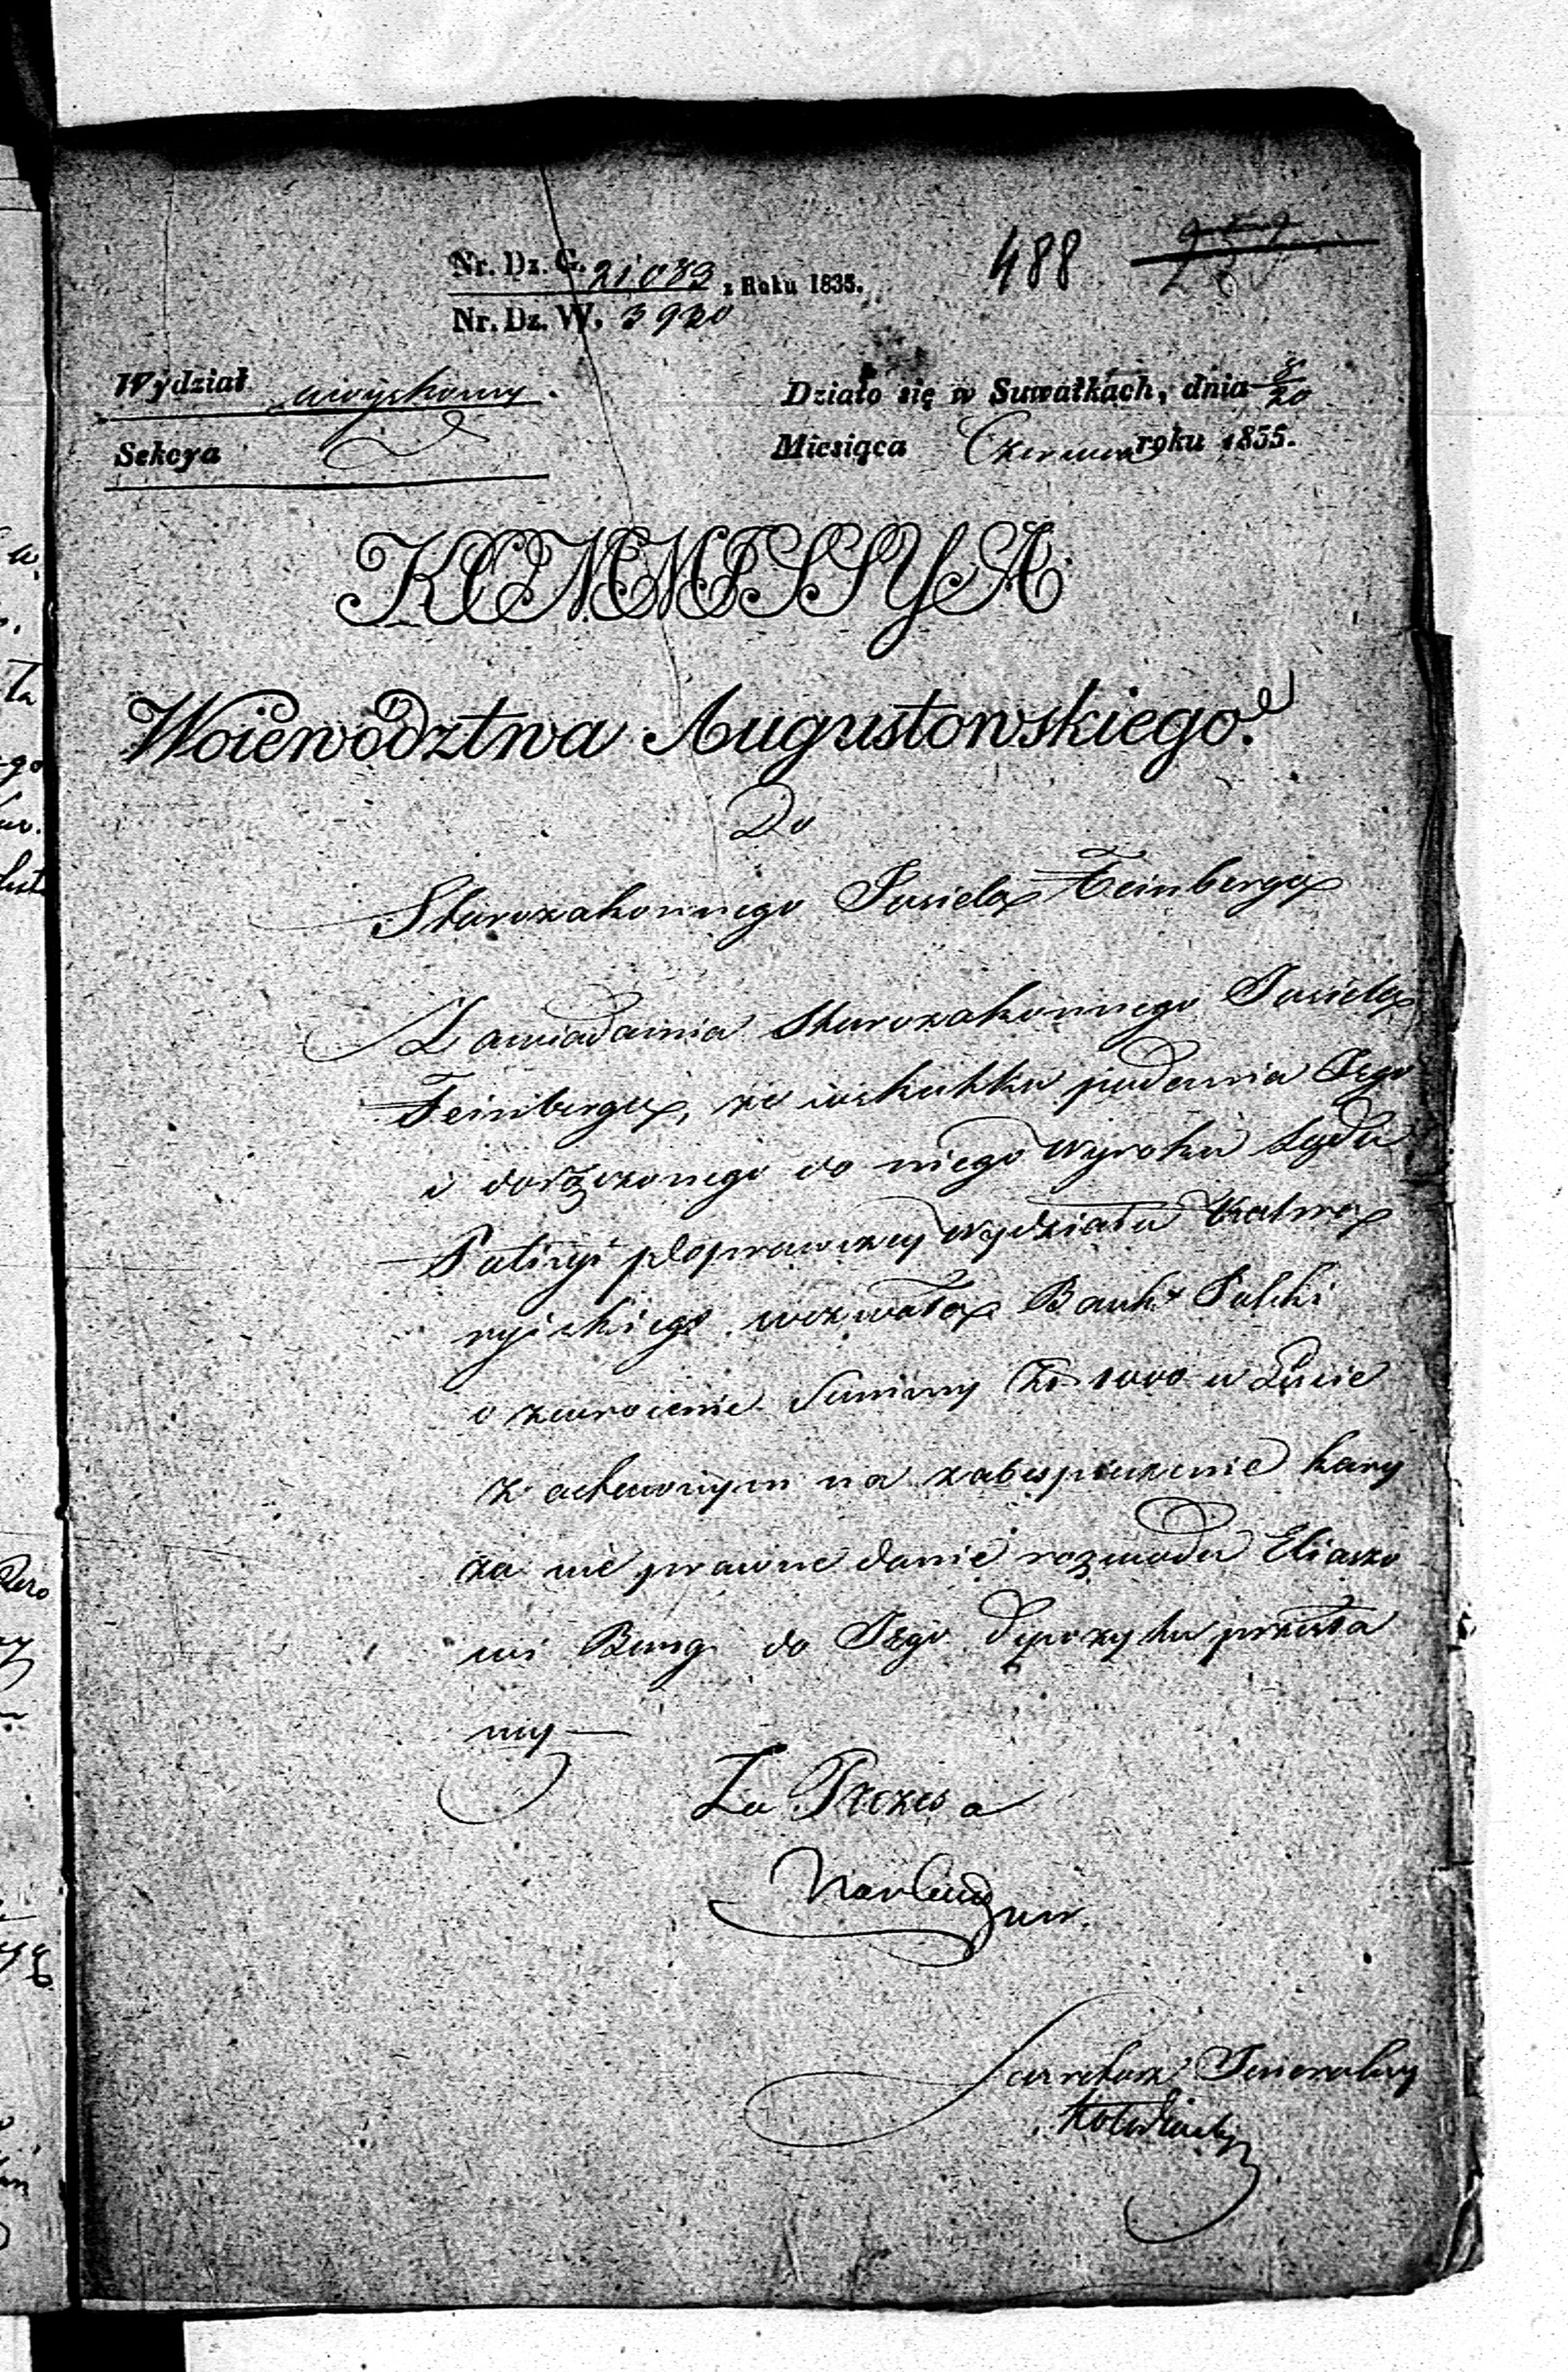 488
Nr. Dz. G. 21083 z Roku 1835.
Nr. Dz. W. 3920
Wydział woyskowy.
Działo się w Suwałkach, dnia 8/20
Sekcya
Miesiąca Czerwca roku 1835.
KOMMISSYA
Woiewództwa Augustowskiego.
Do
Starozakonnego Josiela Feinberga
Zawiadamia Starozakonnego Josiela
Feinberga, że wskutku podania Jego
i dołączonego do niego wyroku Sądu
Policyi Poprawczey Wydziału Kalwa
ryiskiego wezwała Bank Polski
o zwrocenie Summy Zł 1000 w Liście
na zabespieczenie kary
za nie prawne danie rozwodu Eliaszo
wi Berg do Jego Depozytu przesła
ney —
Za Prezesa
Sekretarz Jeneralny